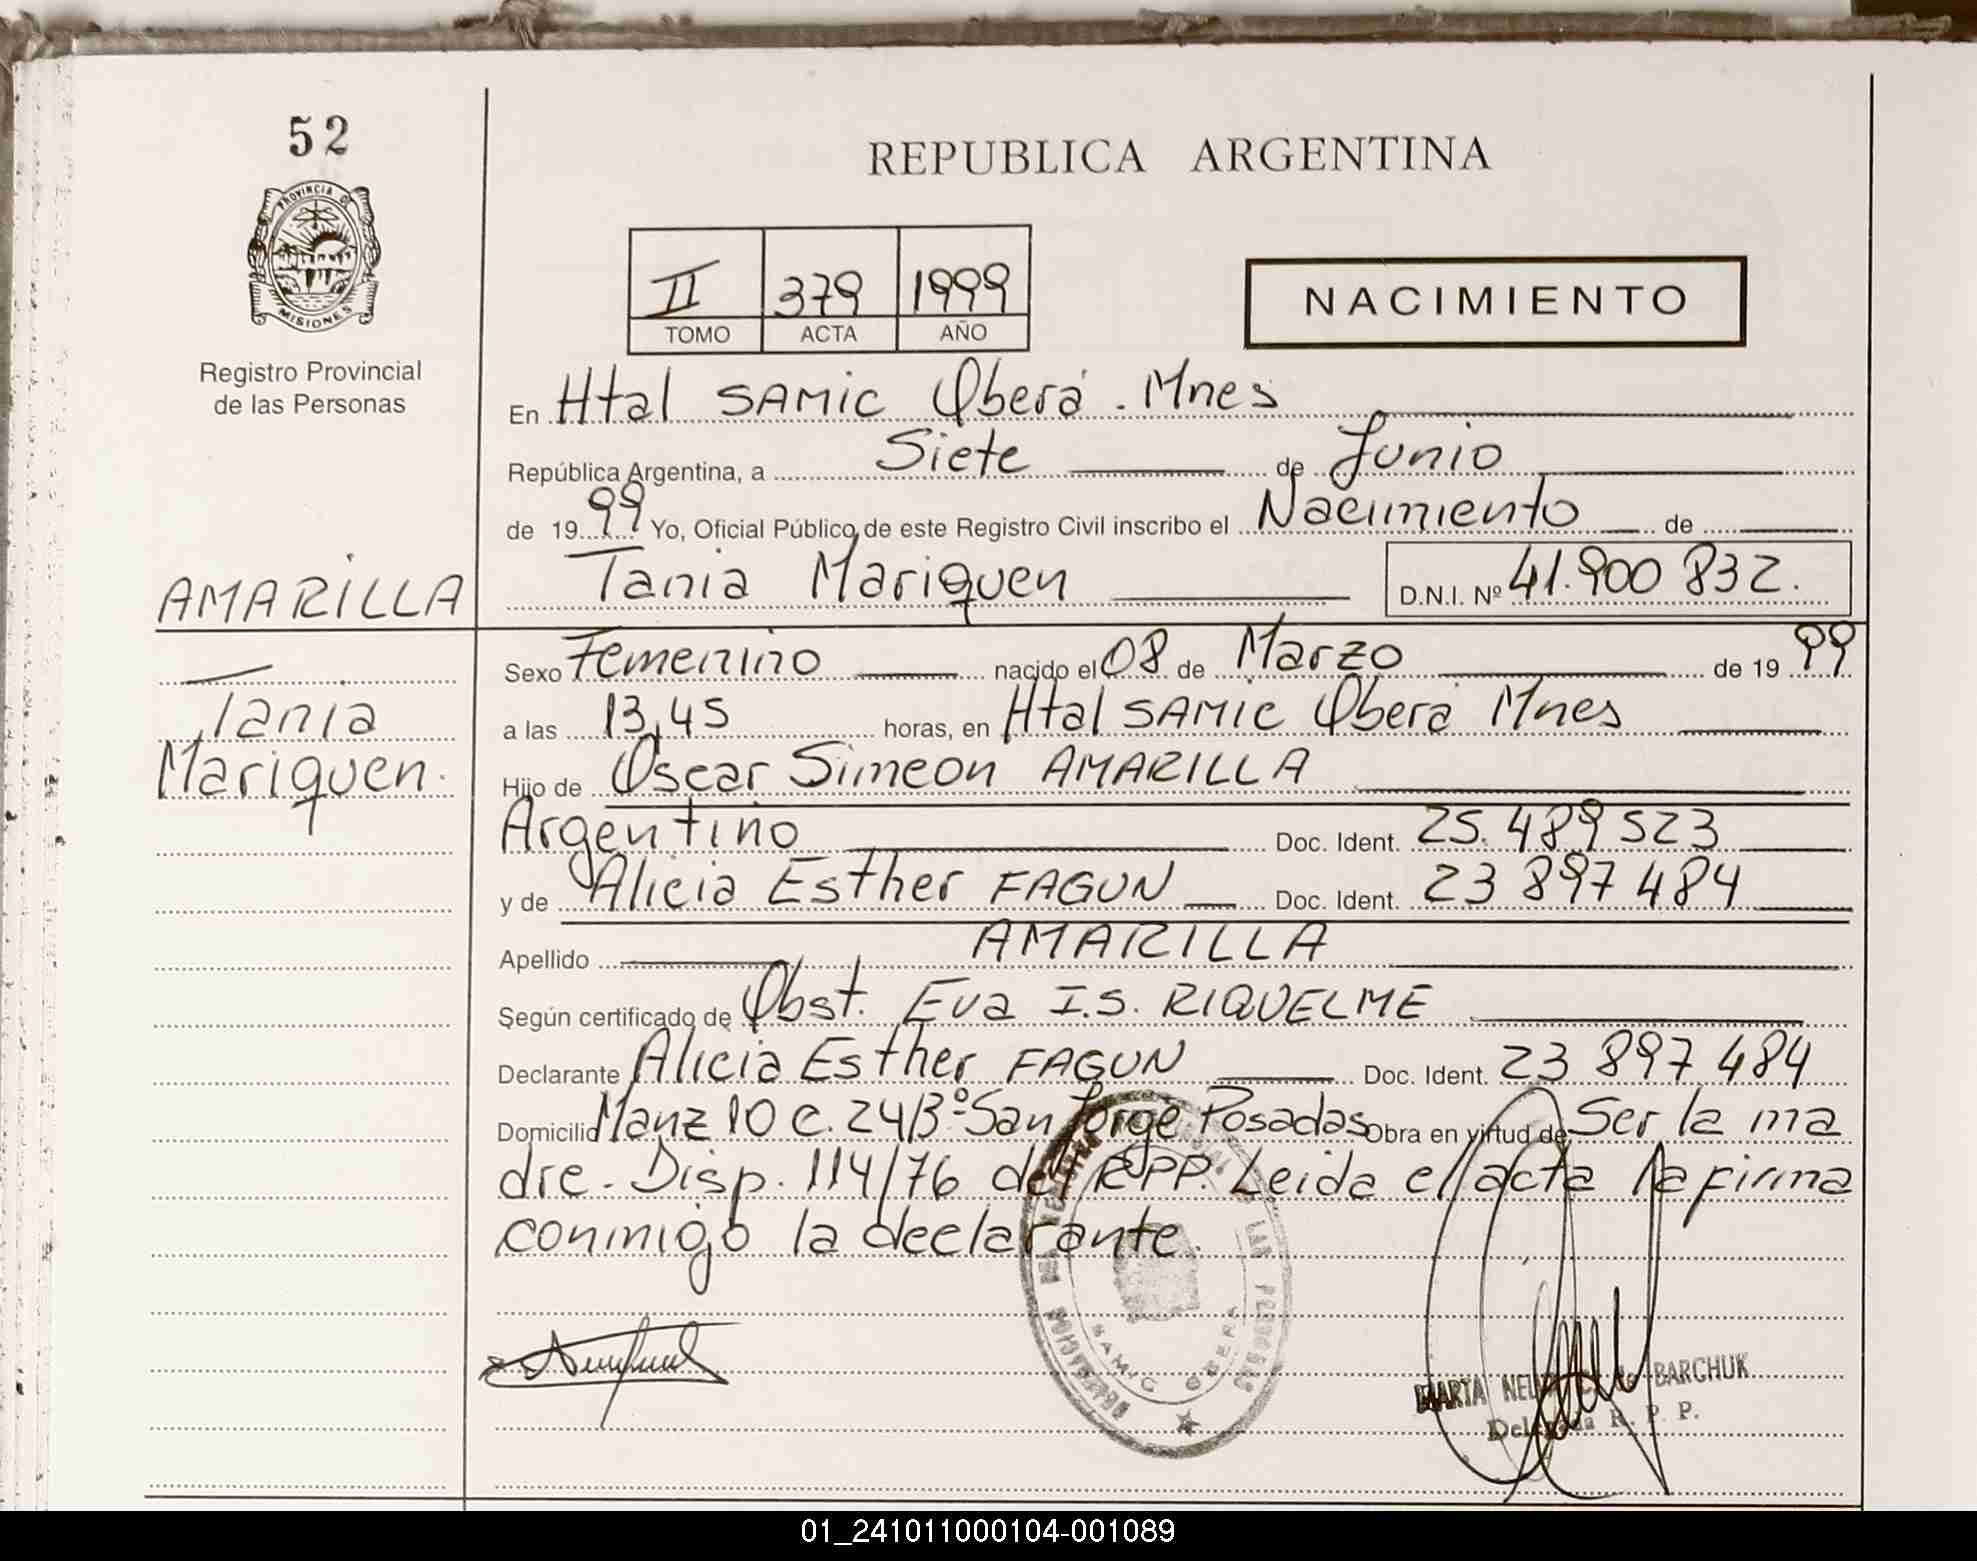 52
PROVINCIA DE
MISIONES
Registro Provincial
de las Personas
REPUBLICA ARGENTINA
II 379 1999
TOMO ACTA AÑO
NACIMIENTO
En Htal SAMIC Oberá. Mnes
República Argentina, a Siete de Junio
de 1999 Yo, Oficial Público de este Registro Civil inscribo el Nacimiento de
Tania Mariquen D.N.I. Nº 41.900 832.
AMARILLA
Tania
Mariquen.
Sexo Femenino nacido el 08 de Marzo de 1999
a las 13,45 horas, en Htal SAMIC Oberá Mnes
Hijo de Oscar Simeon AMARILLA
Argentino Doc. Ident. 25.489 523
y de Alicia Esther FAGUN Doc. Ident. 23 897 484
Apellido AMARILLA
Según certificado de Obst. Eva I.S. RIQUELME
Declarante Alicia Esther FAGUN Doc. Ident. 23 897 484
Domicilio Manz 10 c. 24 Bº San Jorge Posadas Obra en virtud de Ser la ma
dre. Disp. 114/76 del RPP. Leida el acta la firma
conmigo la declarante.
LAS PERSONAS
SAMIC OBERA
MARTA de BARCHUK
Delegada R. P. P.
01_241011000104-001089